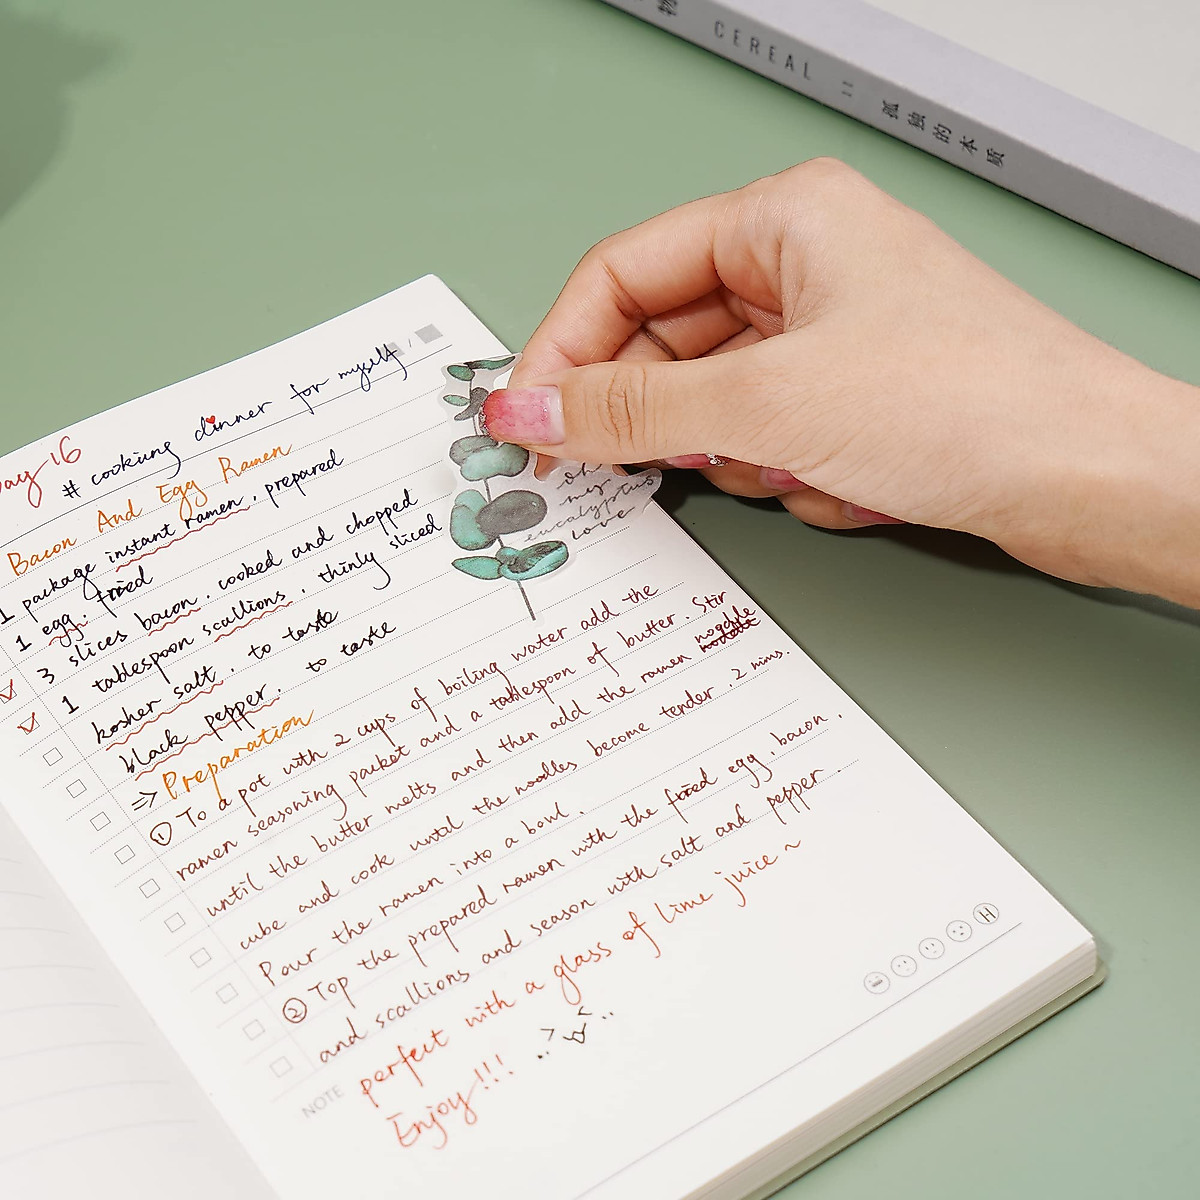 CEREAL 11 孤独的本质
Day 16
# cooking dinner for myself
Bacon And Egg Ramen
1 package instant ramen, prepared
1 egg, fried
3 slices bacon, cooked and chopped
1 tablespoon scallions, thinly sliced
kosher salt, to taste
black pepper, to taste
=> Preparation
① To a pot with 2 cups of boiling water add the
ramen seasoning packet and a tablespoon of butter. Stir
until the butter melts and then add the ramen noodle
cube and cook until the noodles become tender. 2 mins.
Pour the ramen into a bowl.
② Top the prepared ramen with the fried egg, bacon,
and scallions and season with salt and pepper.
perfect with a glass of lime juice ~
Enjoy!!!
NOTE
oh
my
eucalyptus
love